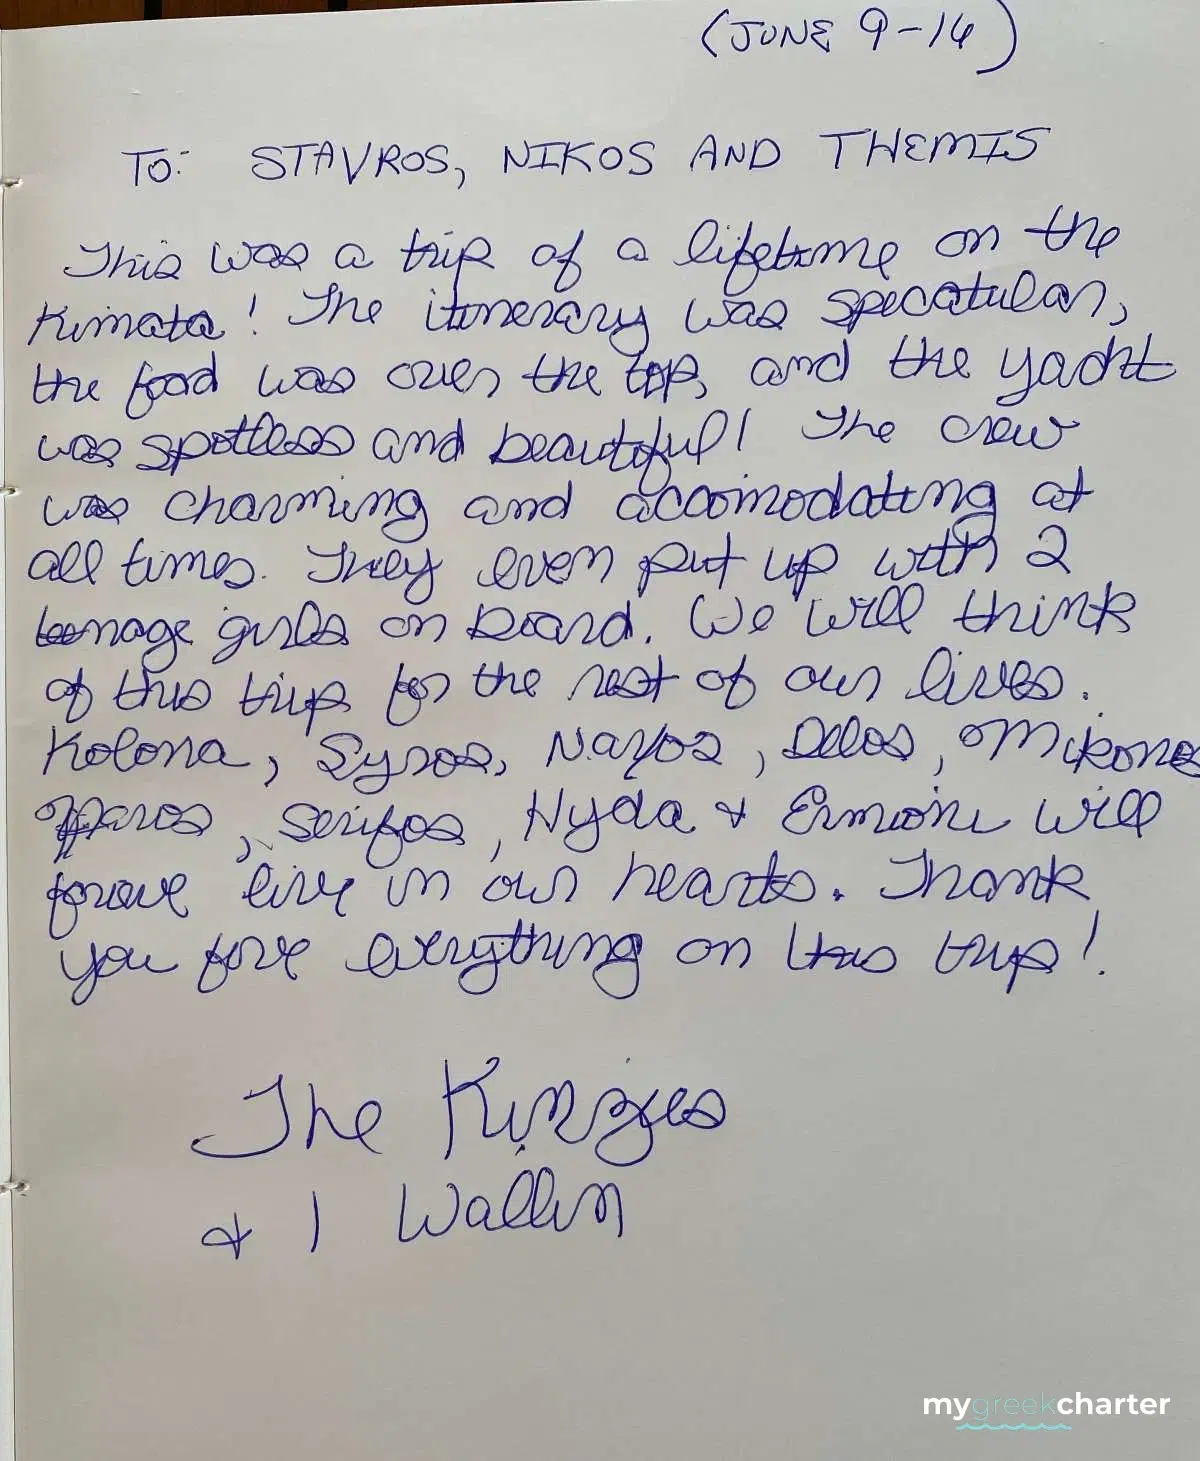 (JUNE 9-14)
TO: STAVROS, NIKOS AND THEMIS
This was a trip of a lifetime on the
Kimata! The itinerary was specatular,
the food was over the top, and the yacht
was spotless and beautiful! The crew
was charming and accomodating at
all times. They even put up with 2
teenage girls on board. We will think
of this trip for the rest of our lives.
Kolona, Syros, Naxos, Delos, Mikonos
Paros, Serifos, Hyda & Ermioni will
forever live in our hearts. Thank
you for everything on this trip!
The Kinzies
& 1 Wallin
mygreekcharter